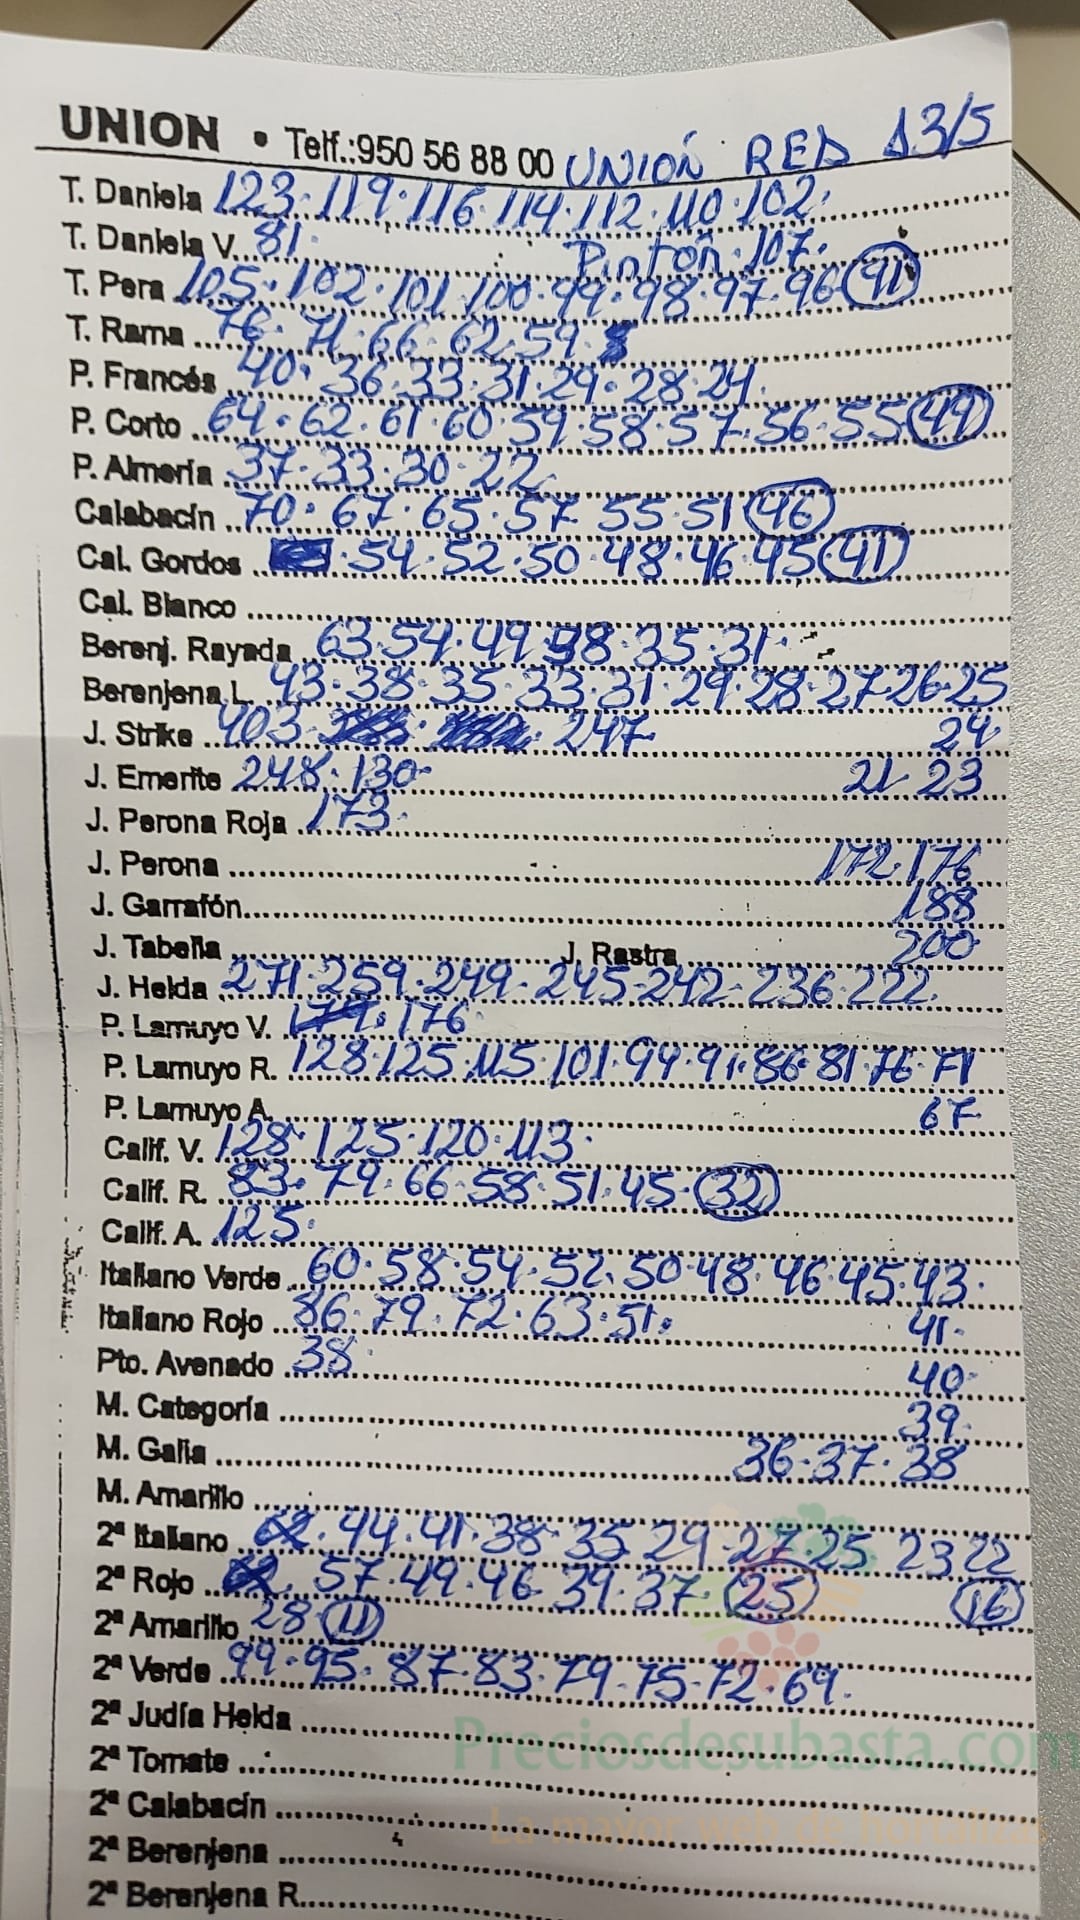 UNION • Telf.:950 56 88 00 UNIÓN RED 13/5
T. Daniela 123·119·116·114·112·110·102·
T. Daniela V. 81· Pintón·107·
T. Pera 105·102·101·100·99·98·97·96 91
T. Rama 76·71·66·62·59·
P. Francés 40·36·33·31·29·28·24·
P. Corto 64·62·61·60·59·58·57·56·55 49
P. Almería 37·33·30·22·
Calabacín 70·67·65·57 55·51 46
Cal. Gordos 54·52·50·48·46·45 41
Cal. Blanco
Berenj. Rayada 63·54·49 38·35·31·
Berenjena L. 43·38·35·33·31·29·28·27·26·25
J. Strike 403 247· 24·
J. Emerite 248·130· 21 23
J. Perona Roja 173·
J. Perona 172·176
J. Garrafón 188
J. Tabella J. Rastra 200
J. Helda 271·259·249·245·242·236·222·
P. Lamuyo V. 176·
P. Lamuyo R. 128·125·115·101·94·91·86·81·76·71
P. Lamuyo A. 67
Calif. V. 128·125·120·113·
Calif. R. 83·79·66·58·51·45·32
Calif. A. 125·
Italiano Verde 60·58·54·52·50·48·46·45·43·
Italiano Rojo 86·79·72·63·51· 41·
Pto. Avenado 38· 40·
M. Categoría 39·
M. Galia 36·37·38
M. Amarillo
2ª Italiano 44·41·38·35 29·27·25 23 22
2ª Rojo 57·49·46 39·37·25 16
2ª Amarillo 28 11
2ª Verde 99·95·87·83·79·75·72·69·
2ª Judía Helda
Preciosdesubasta.com
2ª Tomate
2ª Calabacín
La mayor web de hortalizas
2ª Berenjena
2ª Berenjena R.